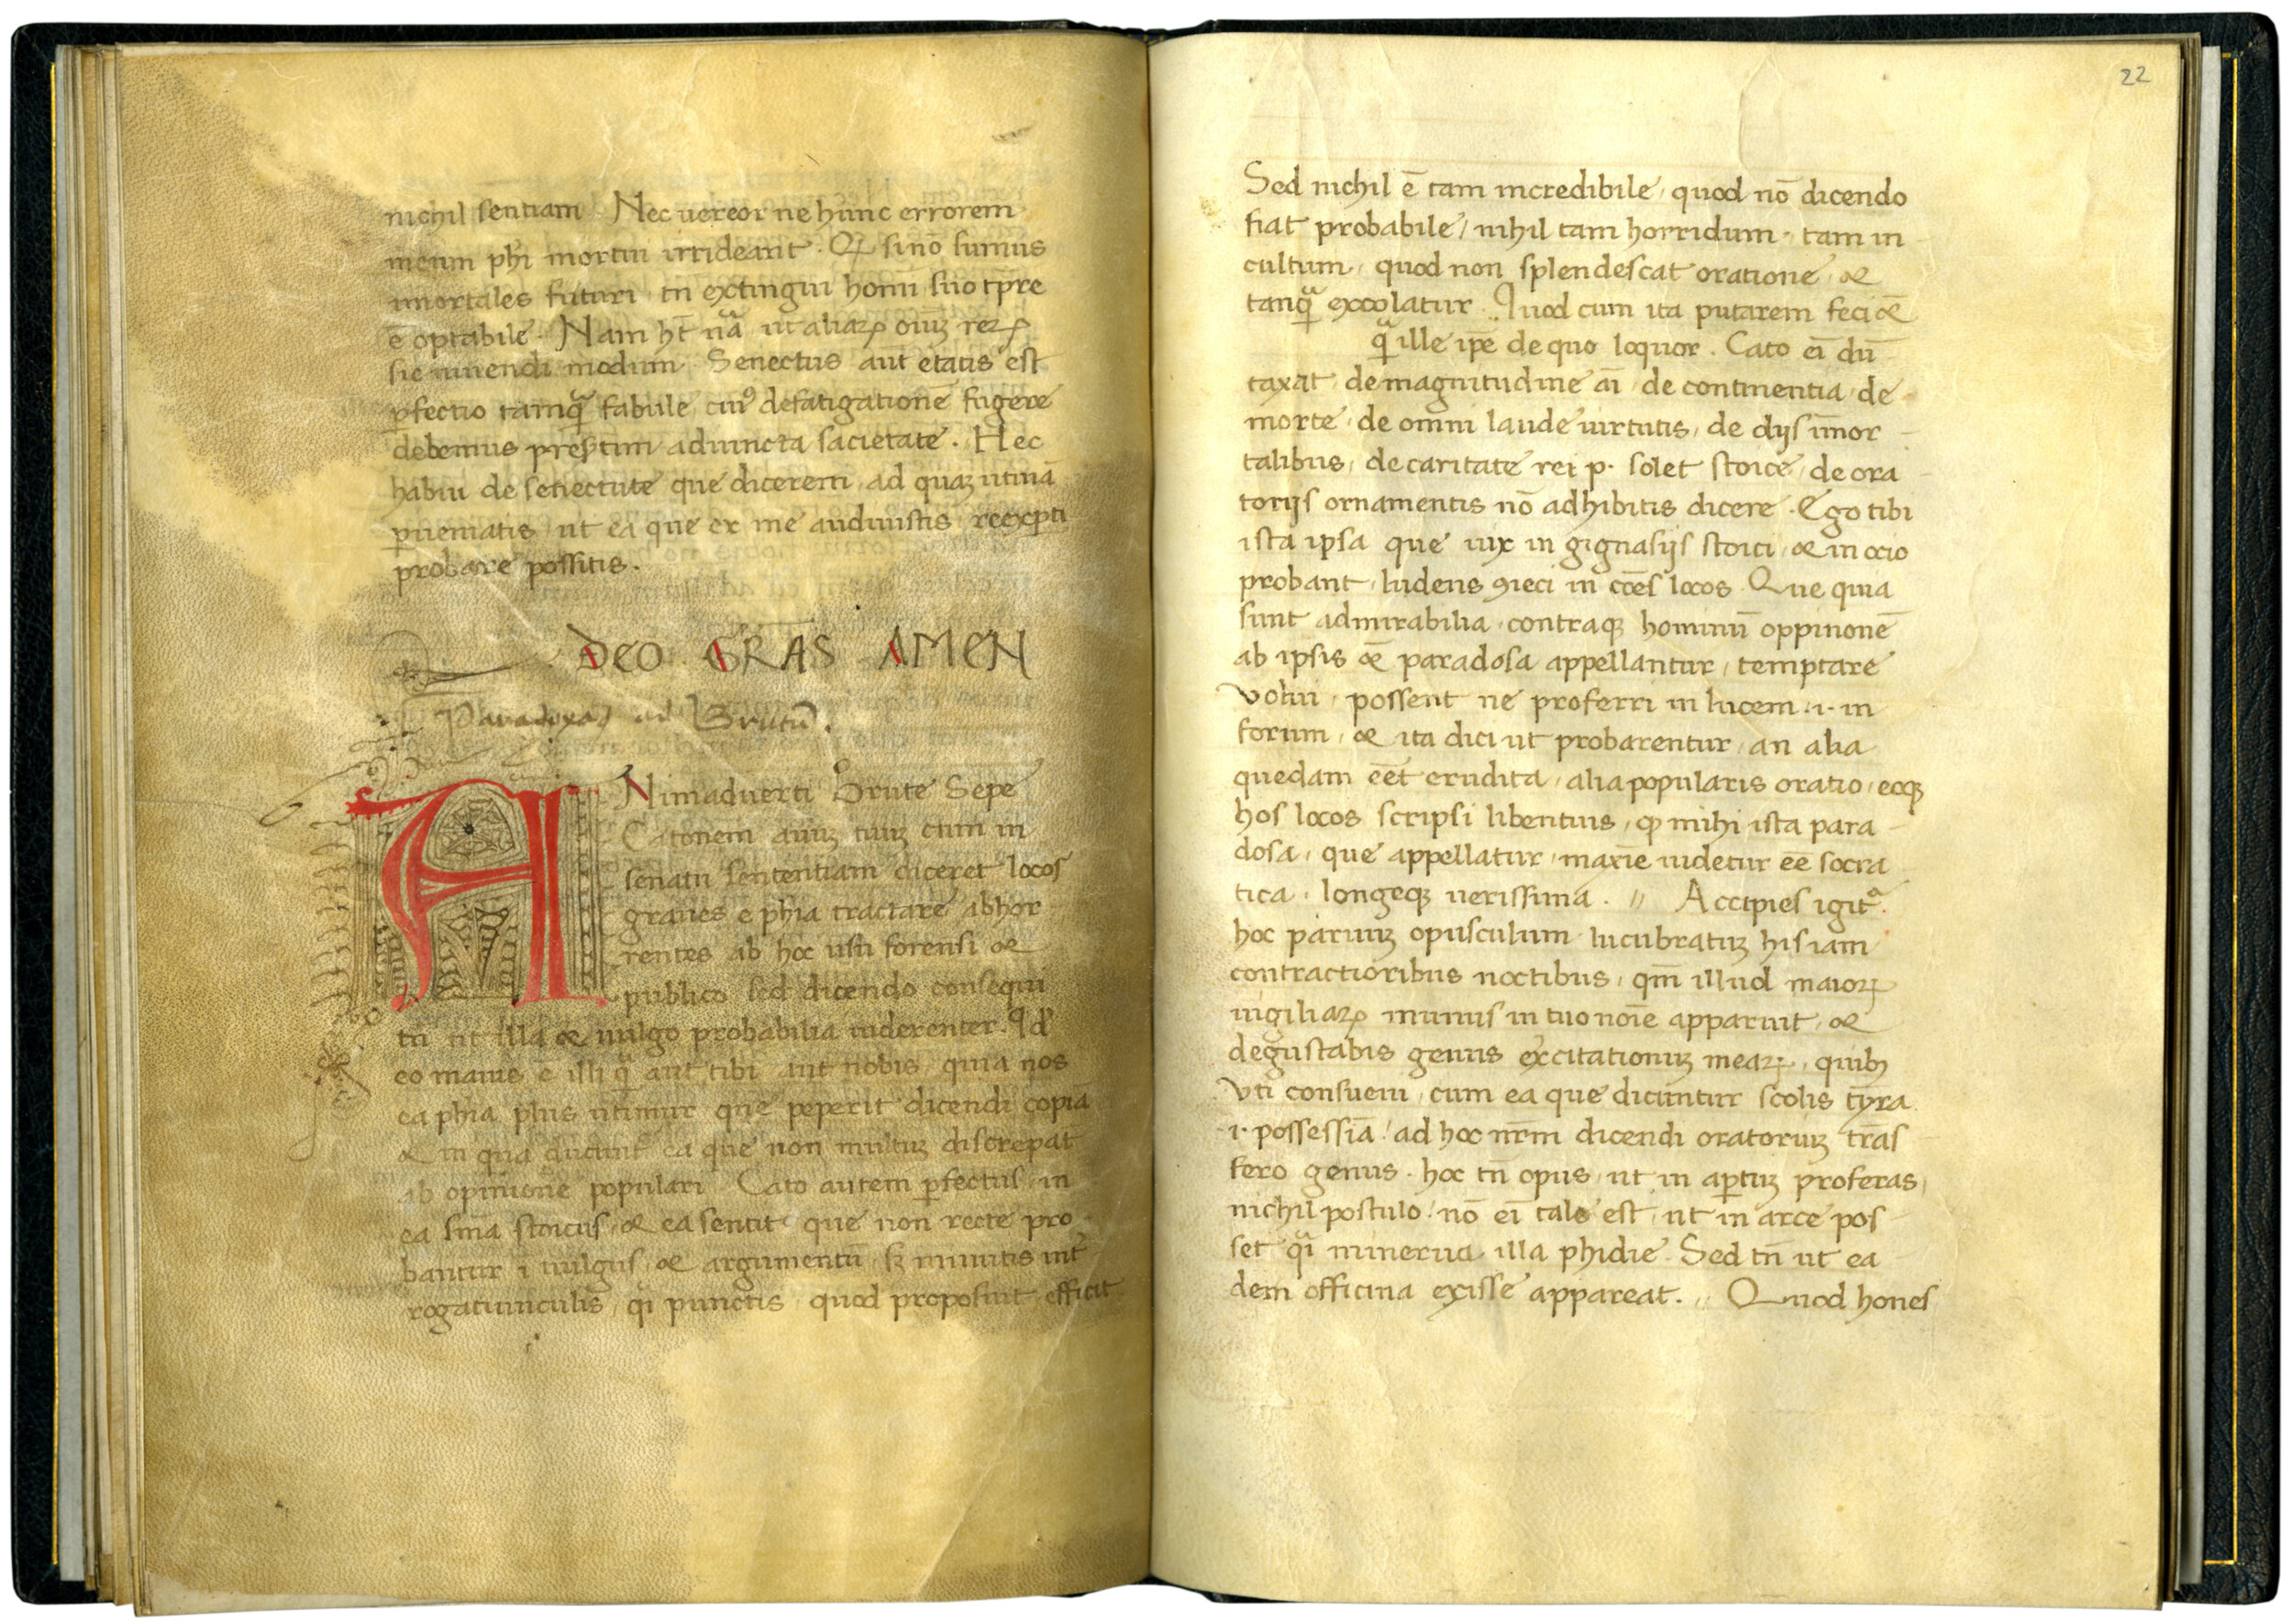 nichil sentiam Nec uereor ne hunc errorem
meum phi mortui irrideant. Qr sinō sumus
imortales futuri tn̄ extingui homi suo tpre
ē optabile. Nam ht nā ut aliaꝝ oiuꝫ reꝝ
sic uiuendi modum. Senectus aut etatis est
ꝑfectio tamqͣ fabule cuiꝰ defatigationē fugere
debemus presertim adiuncta sacietate. Hec
habui de senectute que dicerem ad quaꝫ utinā
ꝑueniatis ut ea que ex me audiuistis re exꝑti
probare possitis.
DEO GRAS AMEN
Paradoxa ad Brutū.
ANimaduerti Brute Sepe
Catonem auuꝫ tuuꝫ cum in
senatu sententiam diceret locos
graues e phia tractare abhor
rentes ab hoc usu forensi et
publico sed dicendo consequi
tn̄ ut illa et uulgo probabilia uiderenter. qd
eo maius ē illi qͣ aut tibi aut nobis quia nos
ea phia plus utimur que peperit dicendi copiā
et in qua dicunt ea que non multuꝫ discrepāt
ab opinione populari Cato autem ꝑfectus in
ea sm̄a stoicus et ea sentit que non recte pro
bantur ī uulgus et argumentū sꝫ minutis int
rogatiunculis qͥ punctis quod proposuit efficit
22
Sed nichil ē tam incredibile quod nō dicendo
fiat probabile / nihil tam horridum tam in
cultum quod non splendescat oratione et
tanqͣ excolatur. Quod cum ita putarem feci et
qͣ ille ipē de quo loquor. Cato eī dū
taxat de magnitudine aī de continentia de
morte de omni laude uirtutis de dijs īmor
talibus de caritate rei p. solet stoice de ora
torijs ornamentis nō adhibitis dicere. Ego tibi
ista ipsa que uix in gignasijs stoici et in ocio
probant ludens ꝯieci in cōes locos Que quia
sunt admirabilia contraqꝫ hominū oppinionē
ab ipsis et paradosa appellantur temptare
volui possent ne proferri in lucem .i. in
forum et ita dici ut probarentur an alia
quedam eet erudita alia popularis oratio eoqꝫ
hos locos scripsi libentius ꝙ mihi ista para
dosa que appellatur maxīe uidetur eē socra
tica longeqꝫ uerissima. // Accipies igitͣ
hoc paruuꝫ opusculum lucubratuꝫ his iam
contractioribus noctibus qm̄ illud maioꝝ
uigiliaꝝ munus in tuo noīe apparuit et
degustabis genus excitationuꝫ meaꝝ quibꝫ
Vti consueui cum ea que dicuntur scolis tyra
.i. possessiā ad hoc nrm̄ dicendi oratoruꝫ trās
fero genus. hoc tn̄ opus ut in aꝑtuꝫ proferas
nichil postulo nō eī tale est ut in arce pos
set qͥ minerua illa phidie. Sed tn̄ ut ea
dem officina exisse appareat. // Quod hones